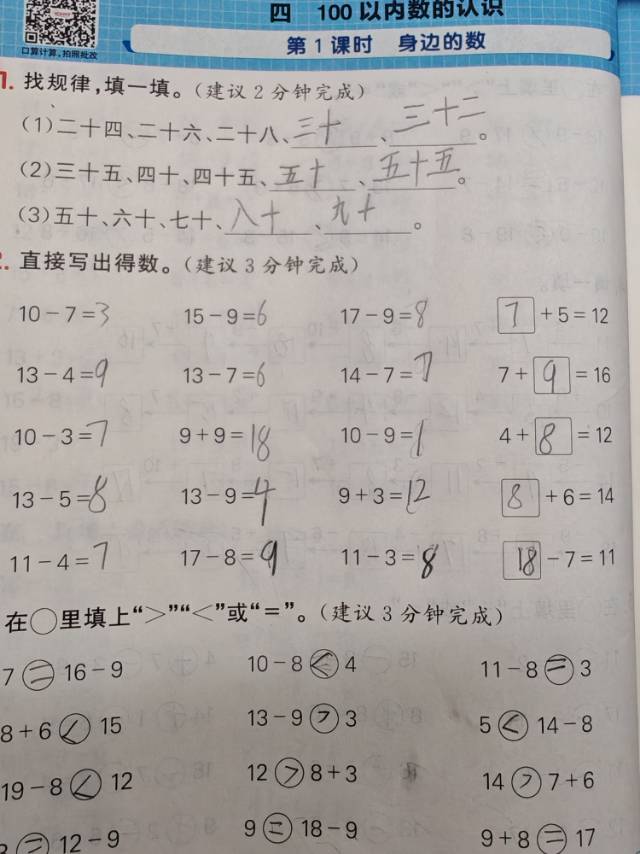 口算计算,拍照批改
四 100以内数的认识
第1课时 身边的数
1. 找规律,填一填。(建议2分钟完成)
(1)二十四、二十六、二十八、三十、三十二。
(2)三十五、四十、四十五、五十、五十五。
(3)五十、六十、七十、八十、九十。
. 直接写出得数。(建议3分钟完成)
10-7=3 15-9=6 17-9=8 7+5=12
13-4=9 13-7=6 14-7=7 7+9=16
10-3=7 9+9=18 10-9=1 4+8=12
13-5=8 13-9=4 9+3=12 8+6=14
11-4=7 17-8=9 11-3=8 18-7=11
在○里填上“>”“<”或“=”。(建议3分钟完成)
7=16-9 10-8<4 11-8=3
8+6<15 13-9>3 5<14-8
19-8<12 12>8+3 14>7+6
3=12-9 9=18-9 9+8=17